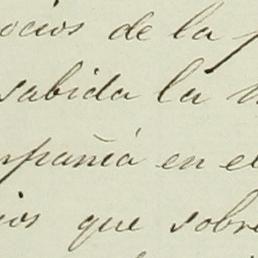 ocios de la p
sabida la m
mpañía en el
ios que sobre